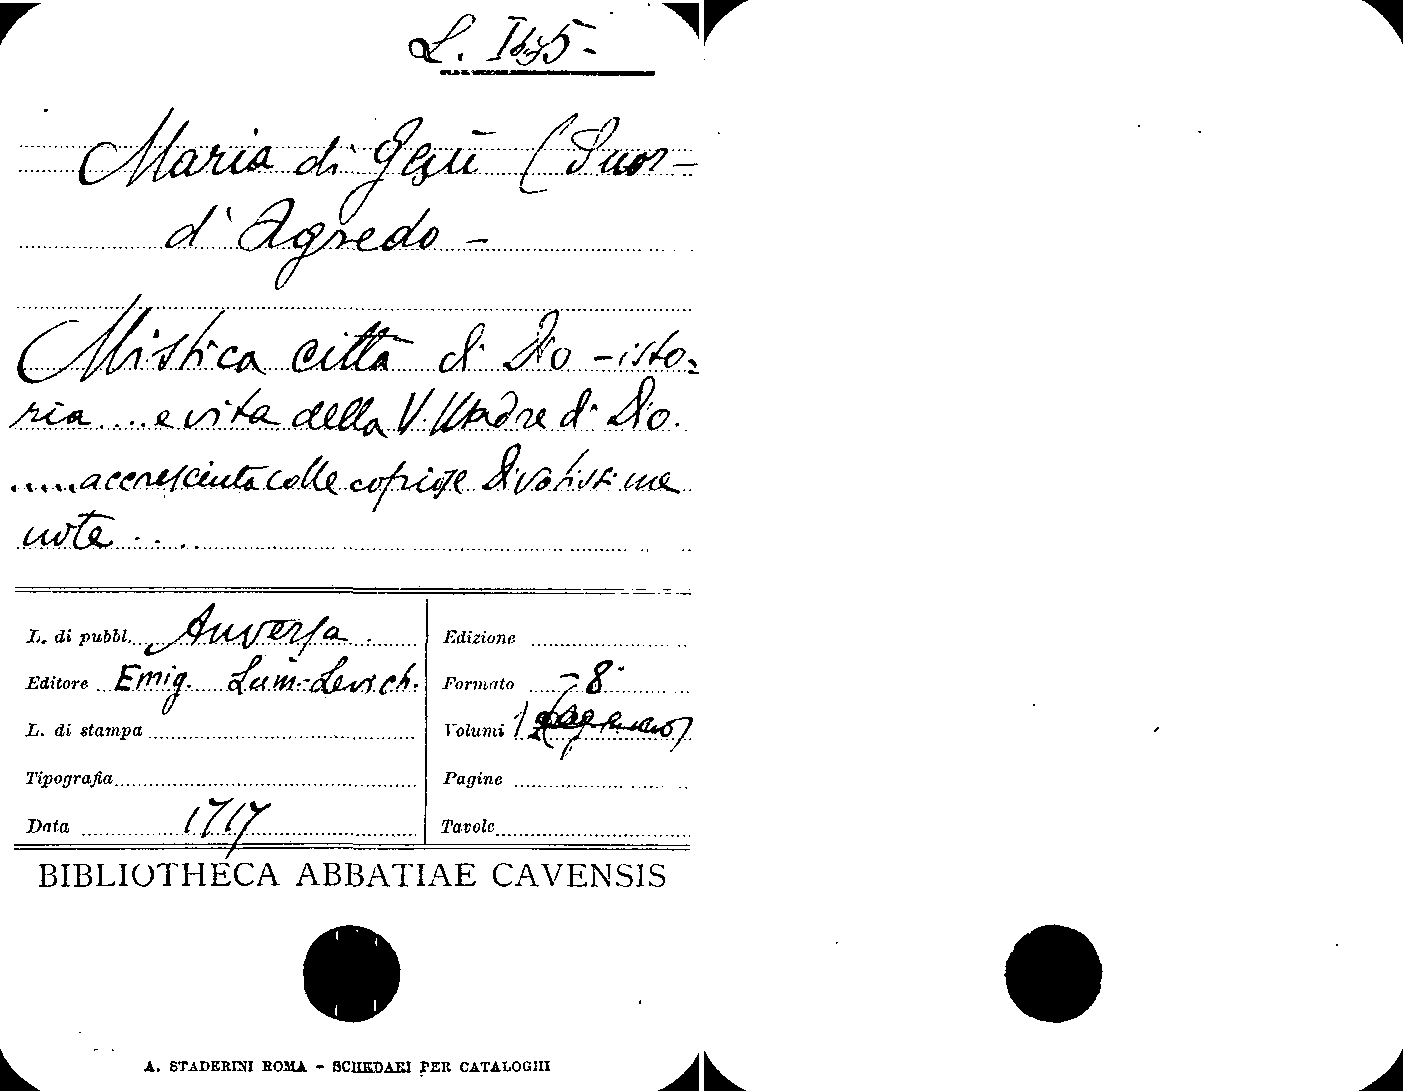 L.
Maria di Gesù (Suor-
d'Agredo -
Mistica città di Dio - isto=
ria....e vita della V. Madre di Dio.
.....accresciuta colle copiose divotissime
note....
L. di pubbl. Anversa.
Edizione
Editore Emig.
Formato - 8°
L. di stampa
Volumi 1
Tipografia
Pagine
Data 1717
Tavole
BIBLIOTHECA ABBATIAE CAVENSIS
A. STADERINI ROMA - SCHEDARI PER CATALOGHI